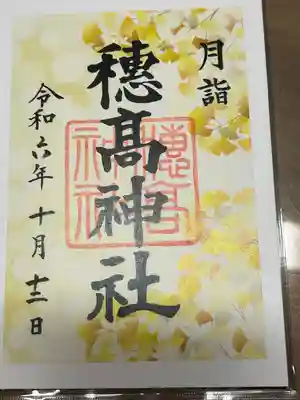 月詣
穂髙神社
令和六年 十月 十二日
穂高神社